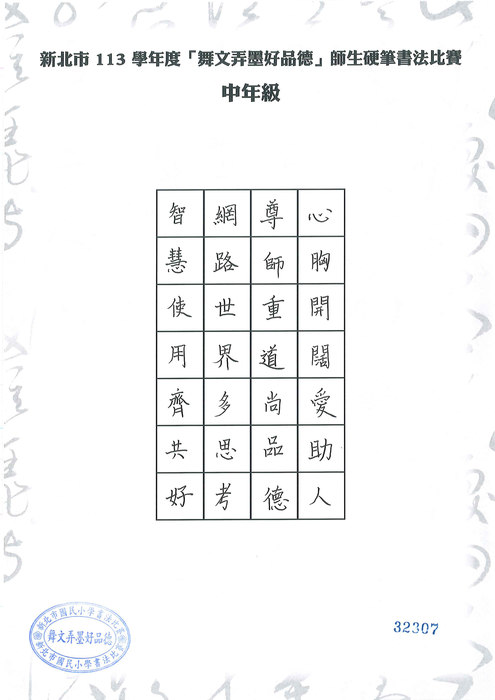 新北市 113 學年度「舞文弄墨好品德」師生硬筆書法比賽
中年級
心胸開闊愛助人
尊師重道尚品德
網路世界多思考
智慧使用齊共好
新北市國民小學書法比賽
舞文弄墨好品德
新北市國民小學書法比賽
32307